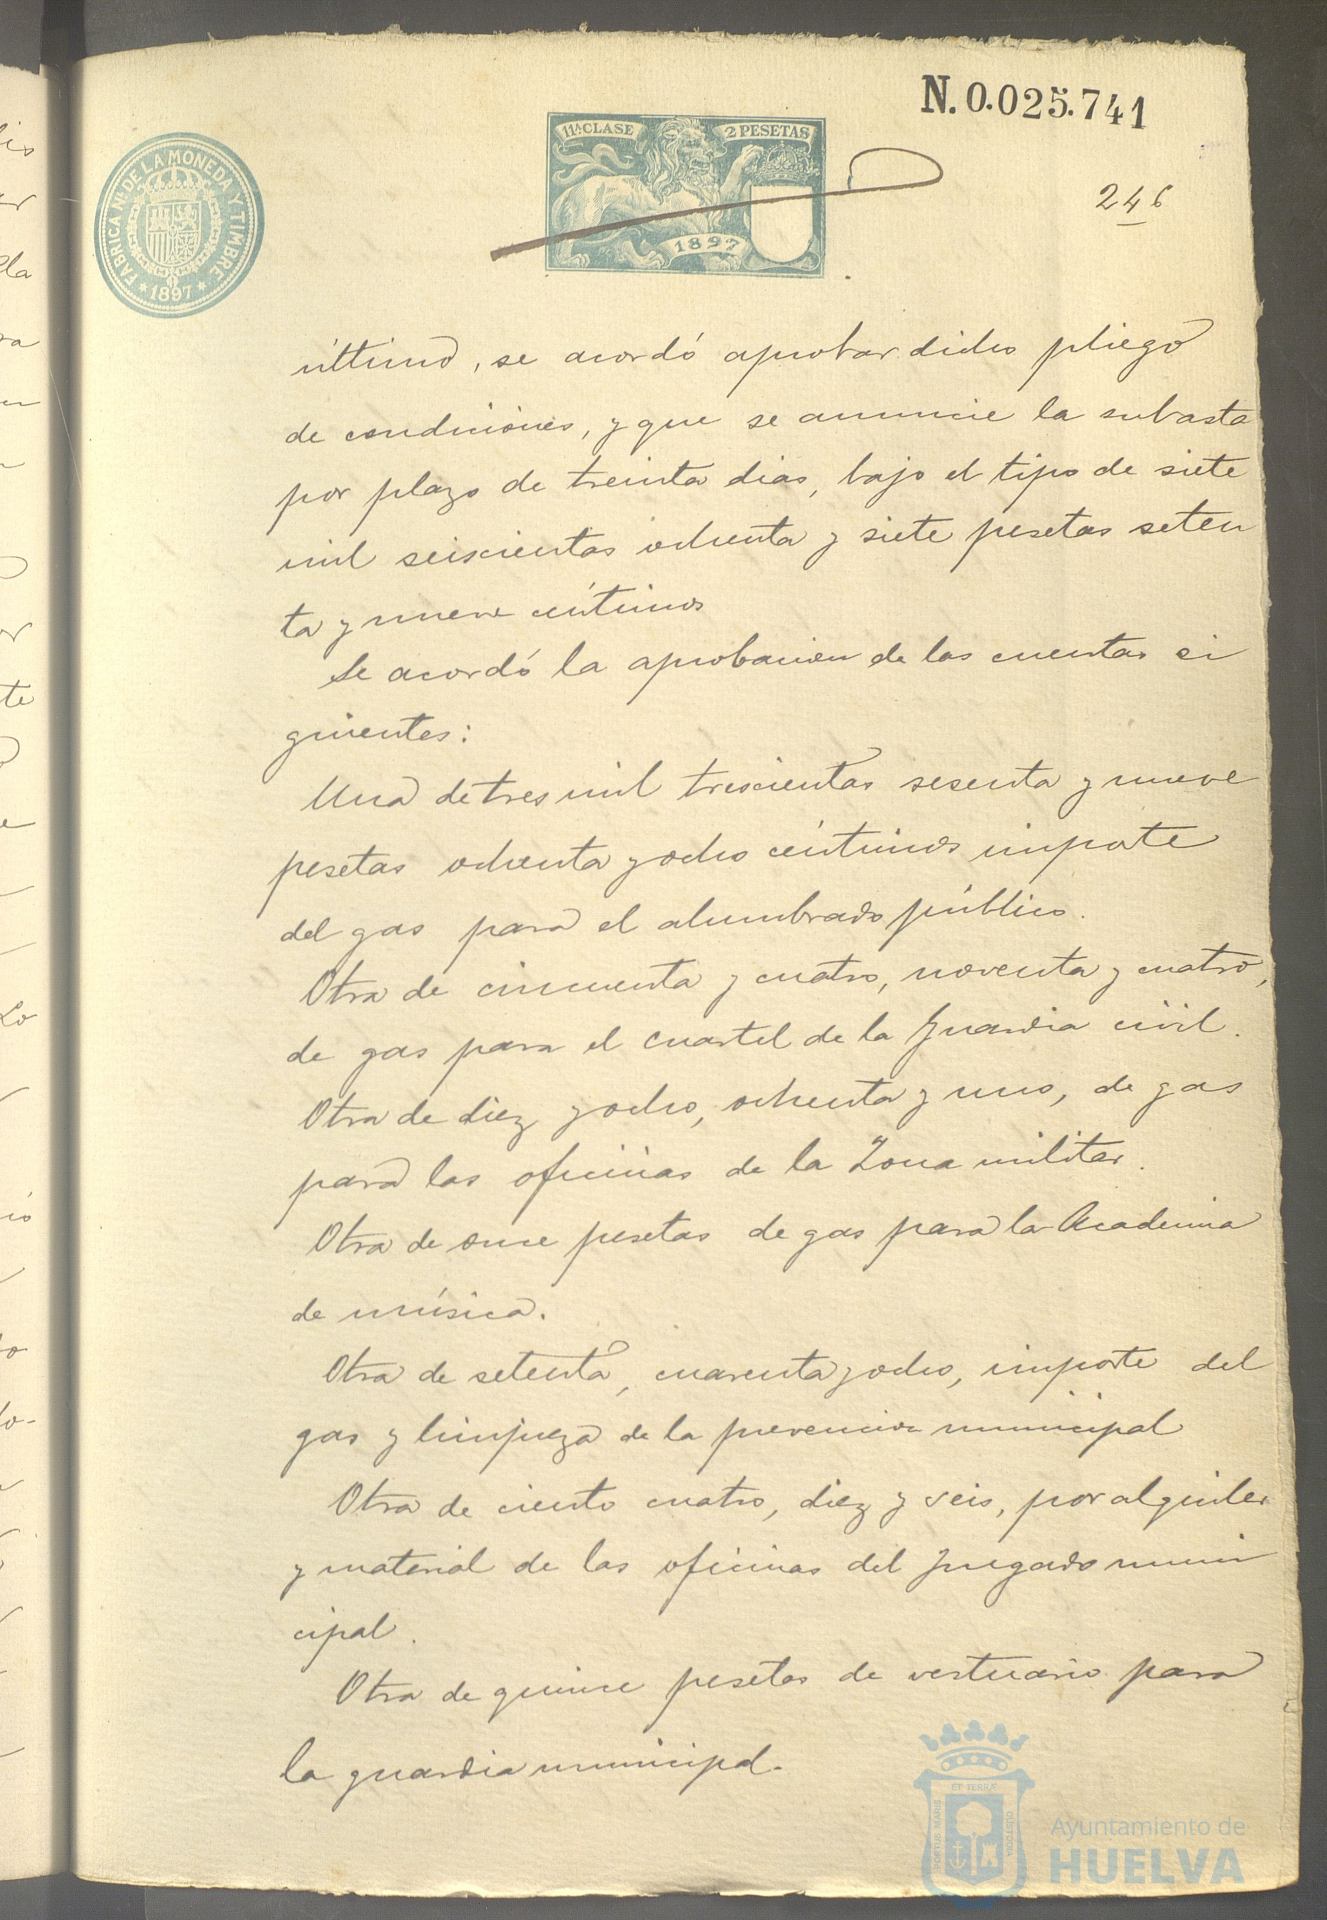 N. 0.025.741
11ª CLASE
2 PESETAS
1897
FABRICA Nal DE LA MONEDA Y TIMBRE
* 1897 *
246
último, se acordó aprobar dicho pliego
de condiciones, y que se anuncie la subasta
por plazo de treinta dias, bajo el tipo de siete
mil seiscientas ochenta y siete pesetas seten
ta y nueve céntimos
Se acordó la aprobacion de las cuentas si
guientes:
Una de tres mil trescientas sesenta y nueve
pesetas ochenta y ocho céntimos importe
del gas para el alumbrado público.
Otra de cincuenta y cuatro, noventa y cuatro,
de gas para el cuartel de la Guardia civil.
Otra de diez y ocho, ochenta y uno, de gas
para las oficinas de la Zona militar.
Otra de once pesetas de gas para la Academia
de música.
Otra de setenta, cuarenta y ocho, importe del
gas y limpieza de la prevencion municipal
Otra de ciento cuatro, diez y seis, por alquiler
y material de las oficinas del Juzgado muni
cipal.
Otra de quince pesetas de vestuario para
la guardia municipal.
PORTUS MARIS ET TERRÆ CUSTODIA
Ayuntamiento de
HUELVA